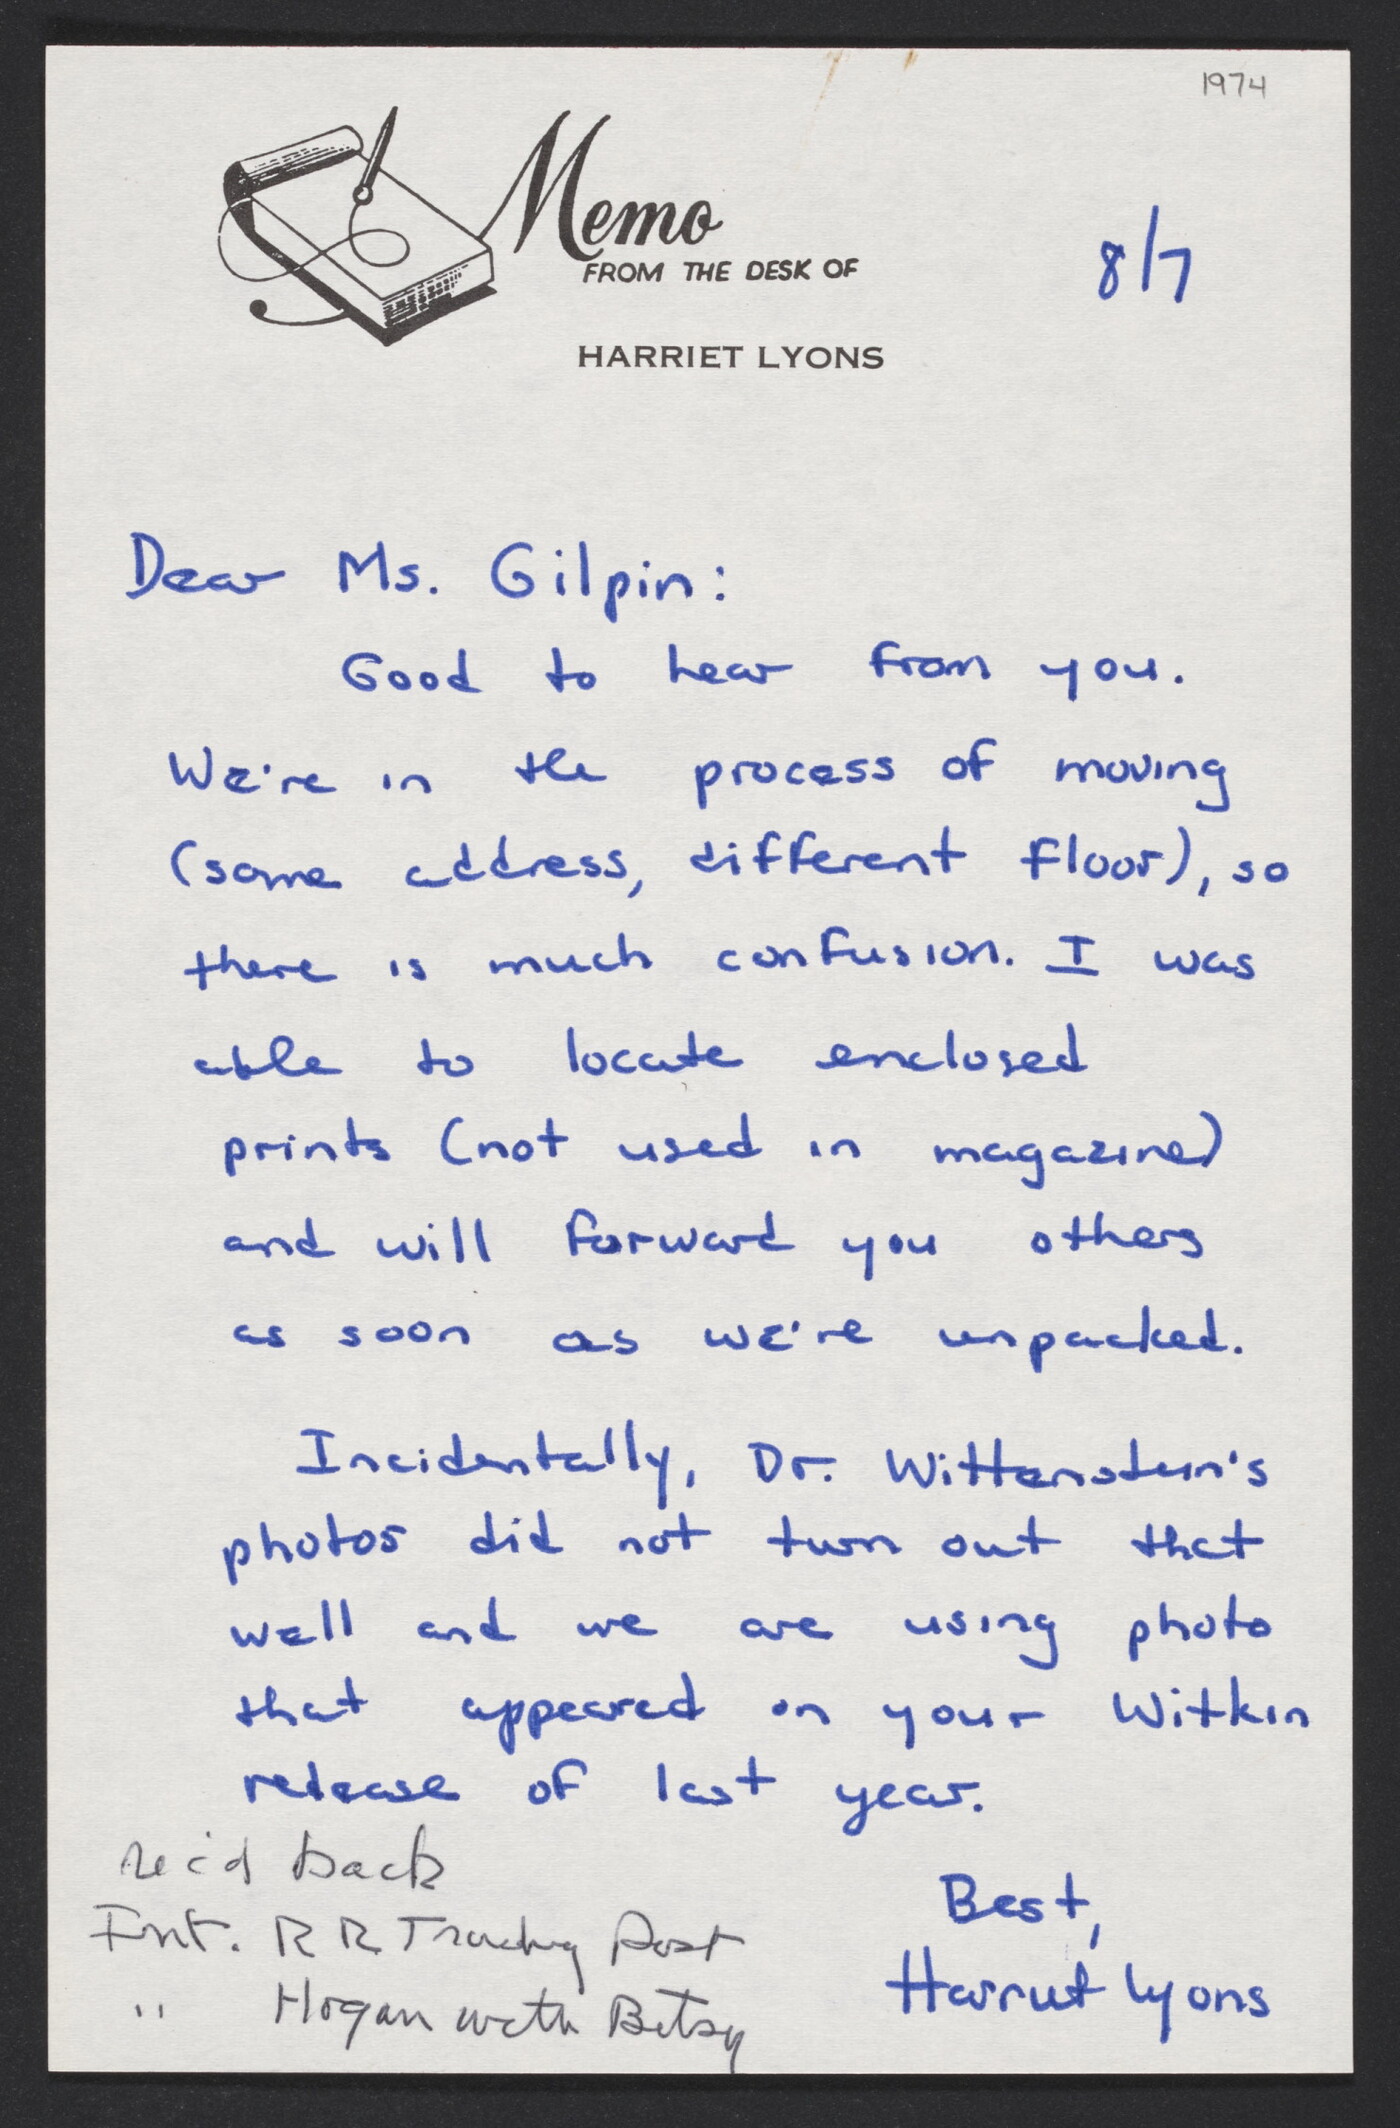 1974
Memo
FROM THE DESK OF
HARRIET LYONS
8/7
Dear Ms. Gilpin:
Good to hear from you.
We're in the process of moving
(same address, different floor), so
there is much confusion. I was
able to locate enclosed
prints (not used in magazine)
and will forward you others
as soon as we're unpacked.
Incidentally, Dr. Wittenstein's
photos did not turn out that
well and we are using photo
that appeared on your Witkin
release of last year.
Best,
Harriet Lyons
rec'd back
Int. RR Trading Post
" Hogan with Betsy